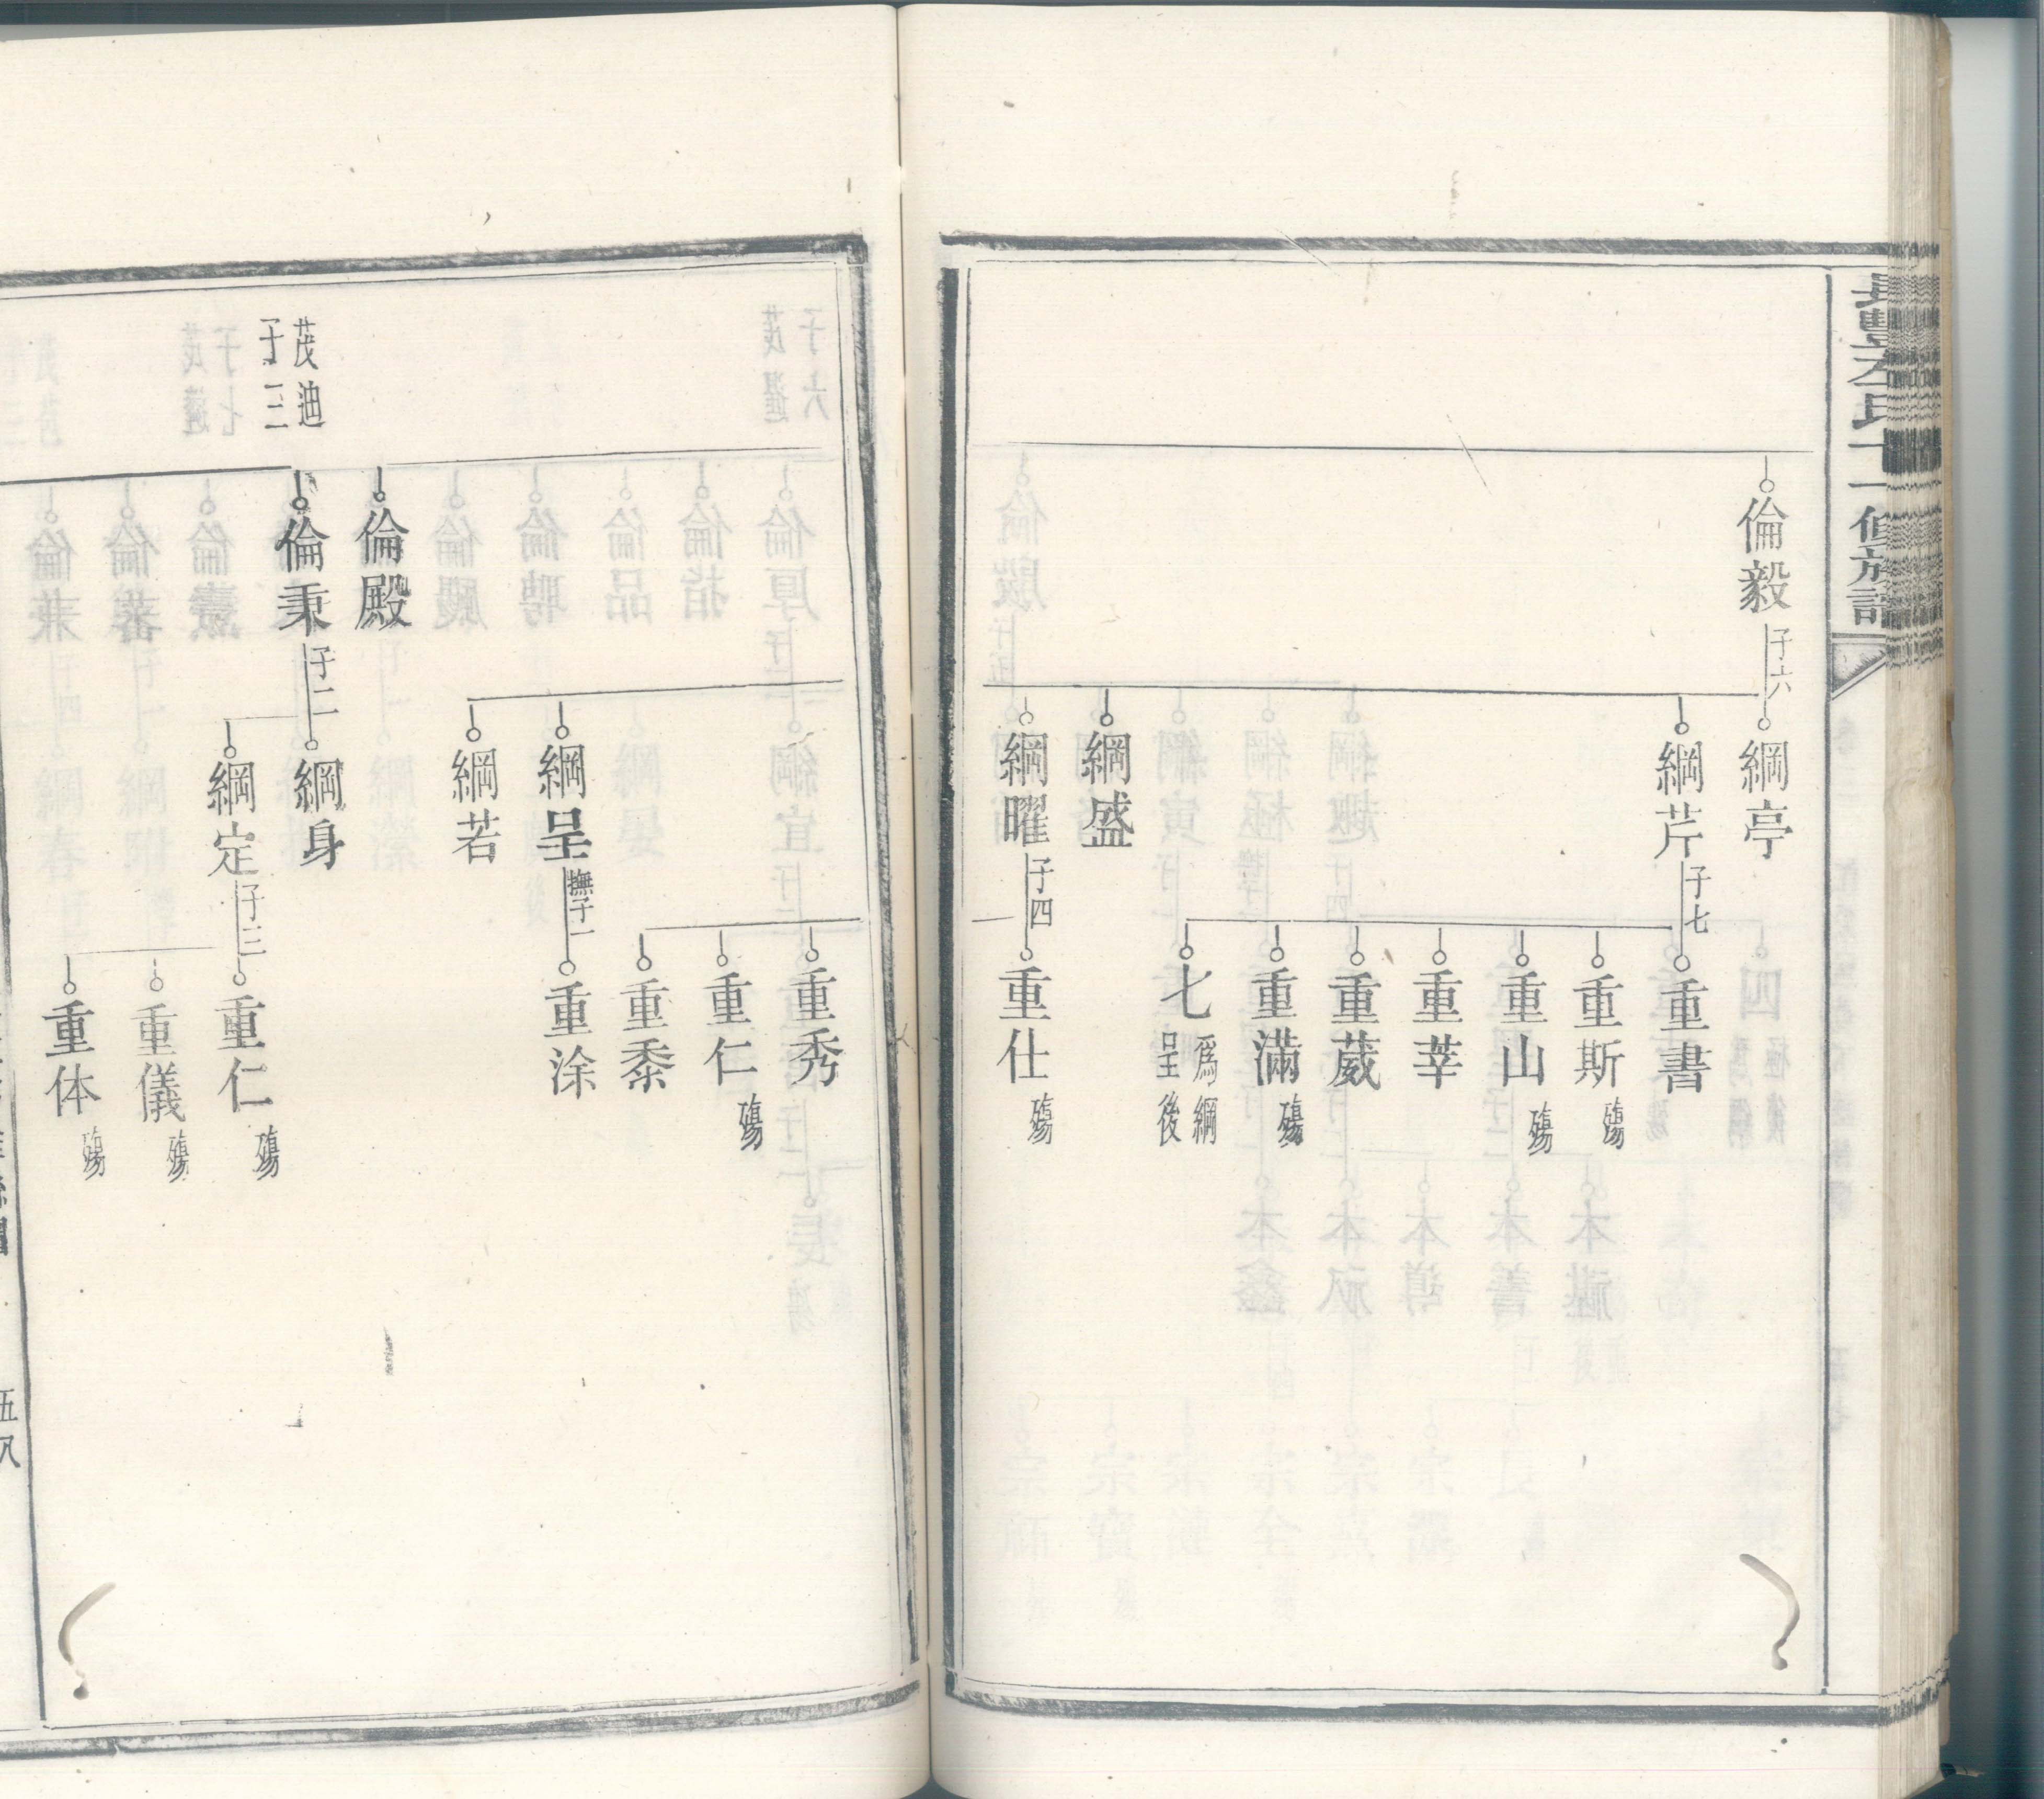 倫毅
子六
綱亭
綱芹
子七
重書
重斯
殤
重山
殤
重莘
重葳
重滿
殤
七
爲綱
呈後
綱盛
綱曜
子四
重仕
殤
重秀
重仁
殤
重黍
綱呈
撫子一
重涂
綱若
倫殿
茂迪
子三
倫秉
子二
綱身
綱定
子三
重仁
殤
重儀
殤
重体
殤